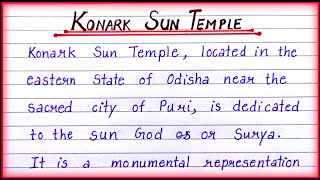 KONARK SUN TEMPLE
Konark Sun Temple, located in the
eastern State of Odisha near the
sacred city of Puri, is dedicated
to the sun God or Surya.
It is a monumental representation